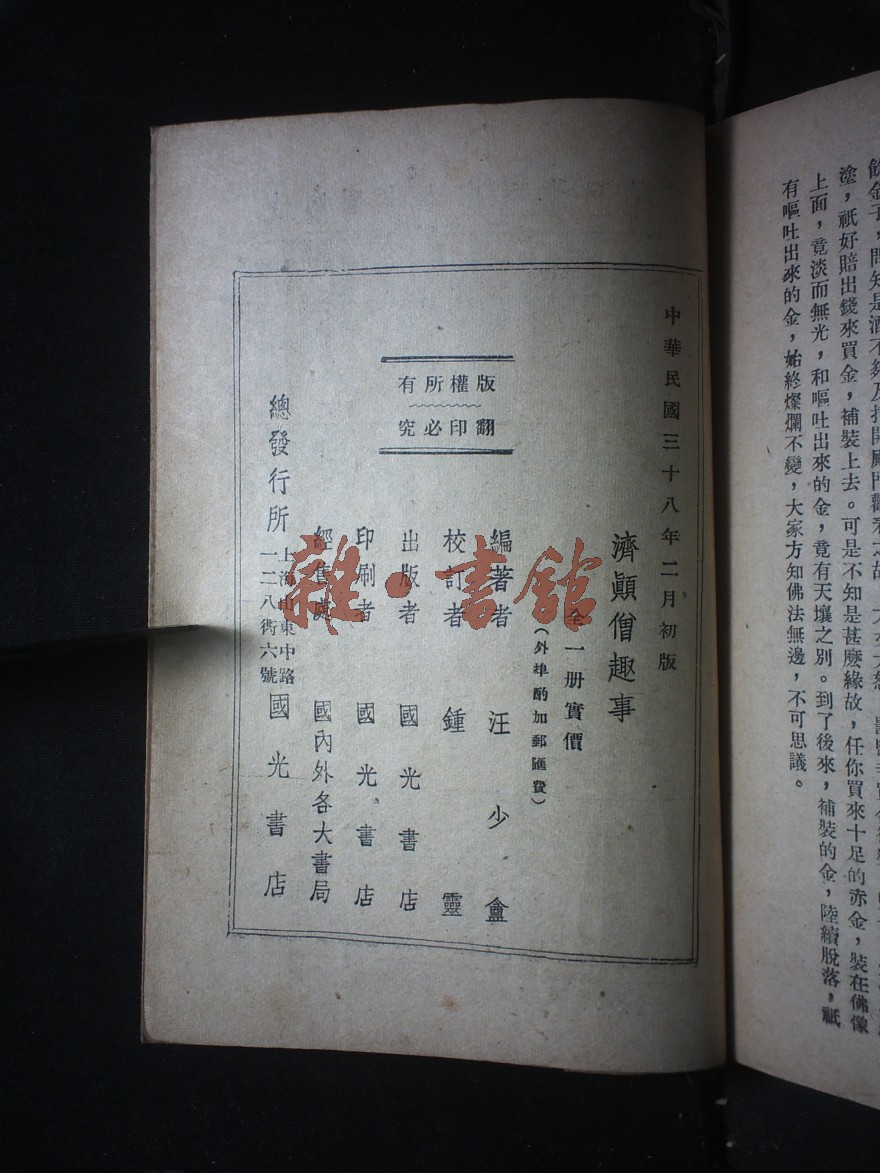 有嘔吐出來的金，始終燦爛不變，大家方知佛法無邊，不可思議。
上面，竟淡而無光，和嘔吐出來的金，竟有天壤之別。到了後來，補裝的金，陸續脫落，祇
塗，祇好賠出錢來買金，補裝上去。可是不知是甚麽緣故，任你買來十足的赤金，裝在佛像
中華民國三十八年二月初版
濟顚僧趣事
全一册實價
（外埠酌加郵匯費）
編著者 汪少盦
校訂者 鍾靈
出版者 國光書店
印刷者 國光書店
經售處 國內外各大書局
總發行所 上海山東中路一二八衖六號 國光書店
版權所有
翻印必究
雜·書館